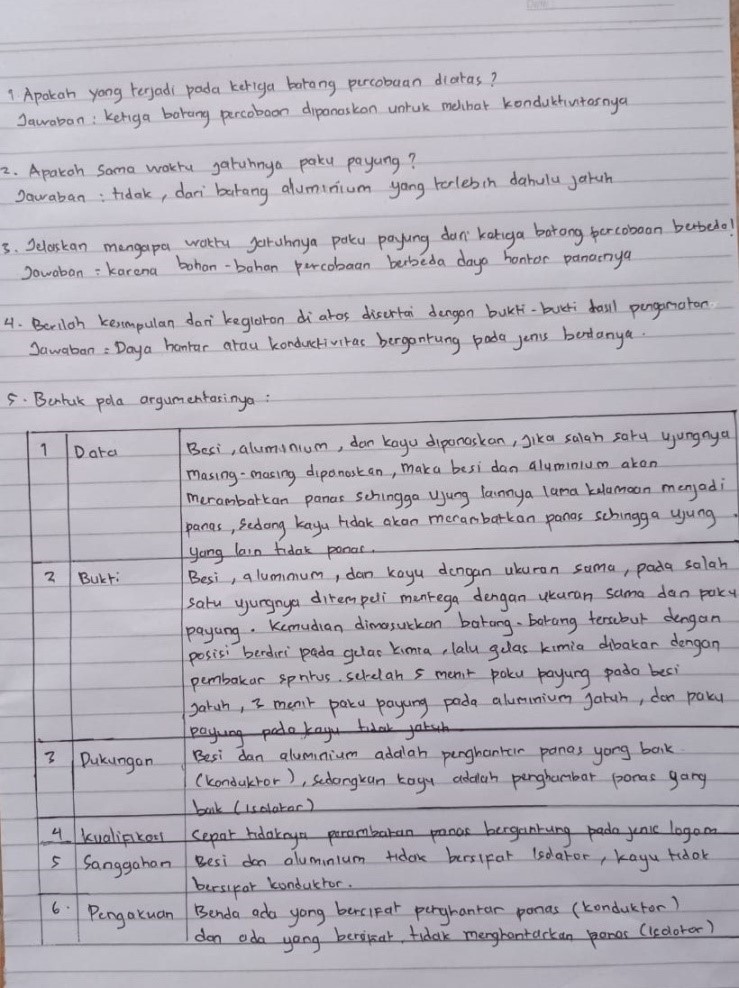 1 Apakah yang terjadi pada ketiga batang percobaan diatas?
Jawaban : ketiga batang percobaan dipanaskan untuk melihat konduktivitasnya
2. Apakah sama waktu jatuhnya paku payung?
Jawaban : tidak, dari batang aluminium yang terlebih dahulu jatuh
3. Jelaskan mengapa waktu jatuhnya paku payung dari ketiga batang percobaan berbeda!
Jawaban = karena bahan-bahan percobaan berbeda daya hantar panasnya
4. Berilah kesimpulan dari kegiatan di atas disertai dengan bukti-bukti hasil pengamatan.
Jawaban = Daya hantar atau konduktivitas bergantung pada jenis bendanya.
5. Bentuk pola argumentasinya :
1 Data Besi, aluminium, dan kayu dipanaskan, jika salah satu ujungnya
masing-masing dipanaskan, maka besi dan aluminium akan
merambatkan panas sehingga ujung lainnya lama kelamaan menjadi
panas, sedang kayu tidak akan merambatkan panas sehingga ujung
yang lain tidak panas.
2 Bukti Besi, aluminum, dan kayu dengan ukuran sama, pada salah
satu ujungnya ditempeli mentega dengan ukuran sama dan paku
payung. Kemudian dimasukkan batang-batang tersebut dengan
posisi berdiri pada gelas kimia, lalu gelas kimia dibakar dengan
pembakar spritus. setelah 5 menit paku payung pada besi
jatuh, 3 menit paku payung pada aluminium jatuh, dan paku
payung pada kayu tidak jatuh
3 Dukungan Besi dan aluminium adalah penghantar panas yang baik
(konduktor), sedangkan kayu adalah penghambat panas yang
baik (isolator)
4 kualifikasi cepat tidaknya perambatan panas bergantung pada jenis logam
5 Sanggahan Besi dan aluminium tidak bersifat isolator, kayu tidak
bersifat konduktor.
6. Pengakuan Benda ada yang bersifat penghantar panas (konduktor)
dan ada yang bersifat tidak menghantarkan panas (isolator)